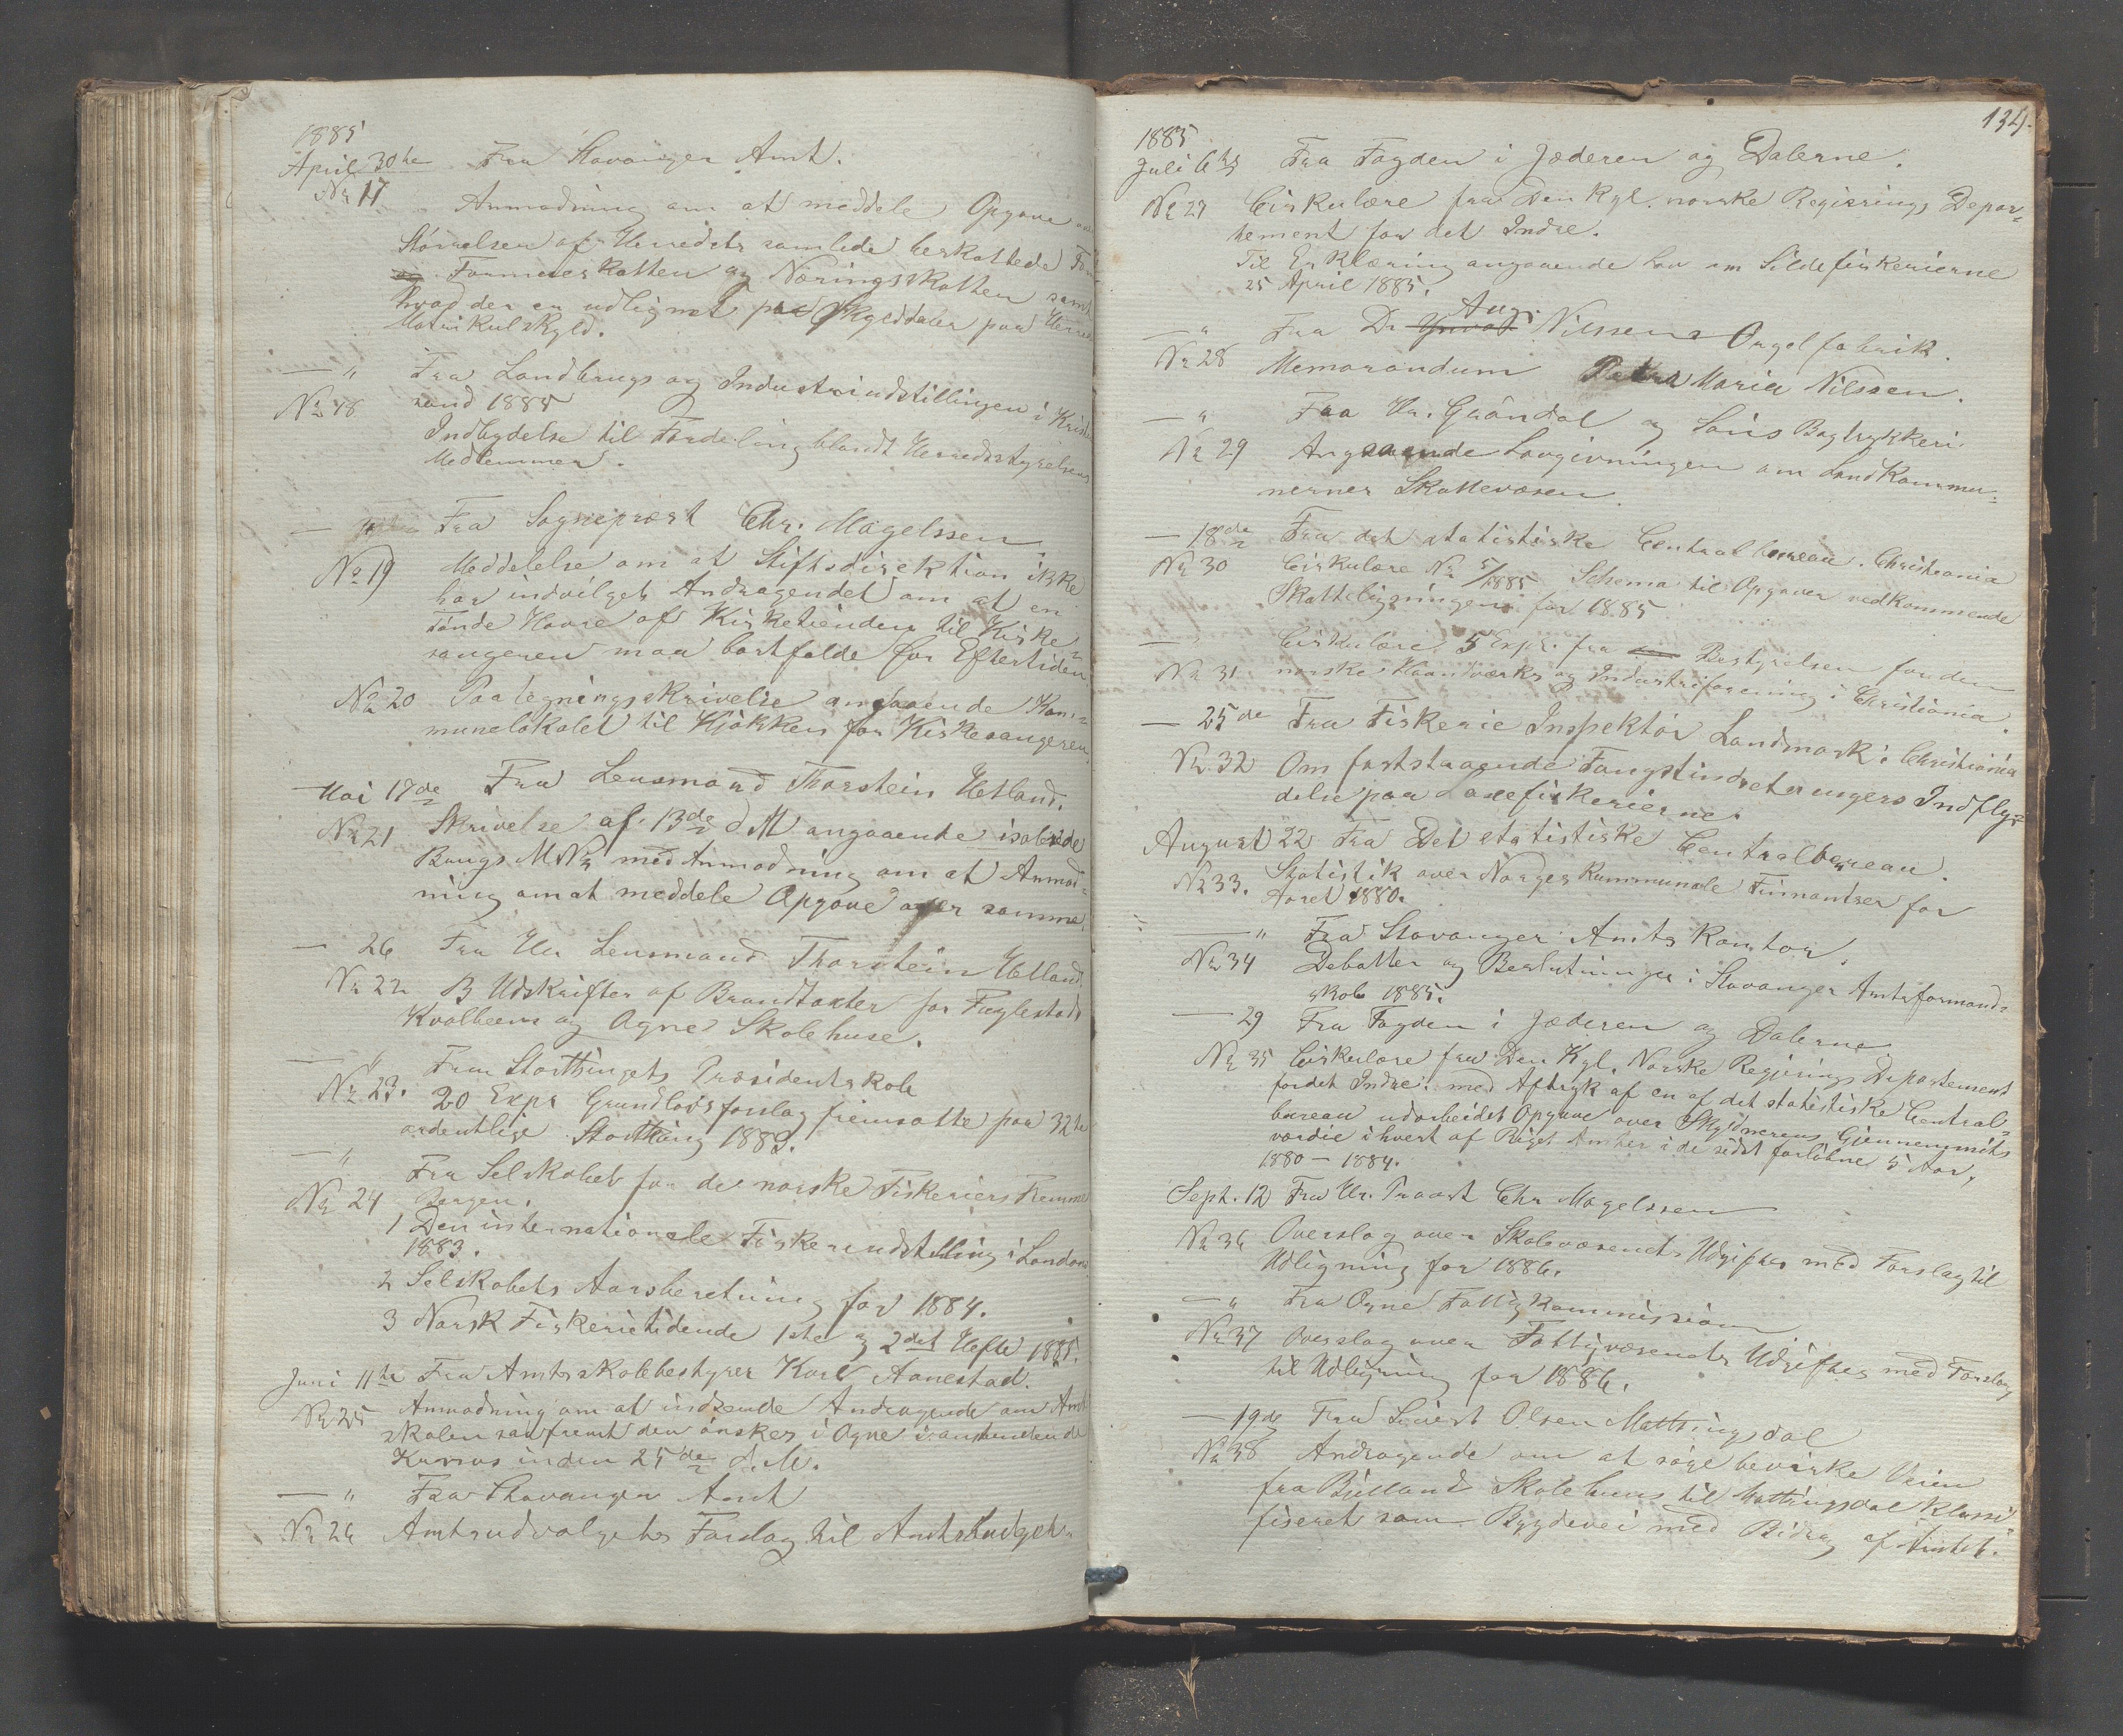 1885
April 30te Fra Stavanger Amt.
No 17 Anmodning om at meddele Opgave
Størrelsen af Herredets samlede beskattede
Formueskatten og Næringsskatten samt
hvad der er udlignet paa Skylddaler paa
Matrikulskyld.
— " Fra Landbrugs og Industriudstillingen i
No 18 sand 1885
Indbydelse til Fordeling blandt Herredsstyrelsens
Medlemmer.
— " Fra Sognepræst Chr. Magelssen.
No 19 Meddelelse om at Stiftsdirektion ikke
har indvilget Andragendet om at en
Tønde Havre af Kirketienden til Kirke-
sangeren maa bortfalde for Eftertiden.
No 20 Paategningsskrivelse angaaende Kom-
munelokalet til Kjøkken for Kirkesangeren
Mai 17de Fra Lensmand Thorstein Hetland.
No 21 Skrivelse af 13de d M angaaende isolerede
Bangs M No med Anmodning om at Anmod-
ning om at meddele Opgave over samme.
— 26 Fra Hr Lensmand Thorstein Hetland
No 22 B Udskrifter af Brandtaxter for Fuglestads
Kvalbeens og Ogne Skolehuse.
— " Fra Storthingets Præsidentskab
No 23. 20 Expr Grundlovsforslag fremsatte paa 32te
ordentlige Storthing 1883.
— " Fra Selskabet for de norske Fiskeriers Fremme
No 24 Bergen.
1 Den internationale Fiskeriudstilling i London
1883.
2 Selskabets Aarsberetning for 1884.
3 Norsk Fiskeritidende 1ste og 2det Hefte 1885.
Juni 11te Fra Amtsskolebestyrer Karl Aanestad.
No 25 Anmodning om at indsende Andragende om Amt
skolen saafremt den ønskes i Ogne i anstundende
Kursus inden 25de d. M.
— " Fra Stavanger Amt
No 26 Amtsudvalgets Forslag til Amtsbudget.
134.
1885
Juli 6te Fra Fogden i Jæderen og Dalerne.
No 27 Cirkulære fra Den Kgl. norske Regjerings Depar-
tement for det Indre.
Til Erklæring angaaende Lov om Sildefiskerierne
25 April 1885.
— " Fra Dr Aug. Nilssens Orgelfabrik.
No 28 Memorandum Maria Nilssen.
— " Fra Hr. Grøndal og Søns Bogtrykkeri
No 29 Angaaende Lovgivningen om Landkommu-
nernes Skattevæsen
— 18de Fra det statistiske Centralbureau. Christiania
No 30 Cirkulære No 5/1885 Schema til Opgaver vedkommende
Skatteligningen for 1885
— " Cirkulære 5 Expr. fra Bestyrelsen for den
No 31 norske Haandværks og Industriforening i Christiania.
— 25de Fra Fiskerie Inspektør Landmark i Christiania
No 32 Om faststaaende Fangstindretningers Indfly-
delse paa Laxefiskerierne.
August 22 Fra Det statistiske Centralbureau.
No 33. Statistik over Norges Kummunale Finantser for
Aaret 1880.
— " Fra Stavanger Amts Kontor.
No 34 Debatter og Beslutninger i Stavanger Amtsformand-
skab 1885.
— 29 Fra Fogden i Jæderen og Dalerne
No 35 Cirkulære fra Den Kgl. Norske Regjerings Departement
for det Indre. med Aftryk af en af det statistiske Central-
bureau udarbeidet Opgave over Skyldmerens Gjennemsnits
værdie i hvert af Riget Amter i de sidst forløbne 5 Aar,
1880 – 1884.
Sept. 12 Fra Hr. Provst Chr Magelssen
No 36 Overslag over Skolevæsenets Udgifter med Forslag til
Udligning for 1886.
— " Fra Ogne Fattigkommission
No 37 Overslag over Fattigvæsenets Udgifter med Forslag
til Udligning for 1886.
— 19de Fra Sivert Olsen Mattingsdal
No 38 Andragende om at søge bevirke Veien
fra Bjelland Skolehuus til Mattingsdal klassi
fiseret som Bygdevei med Bidrag af Amtet.